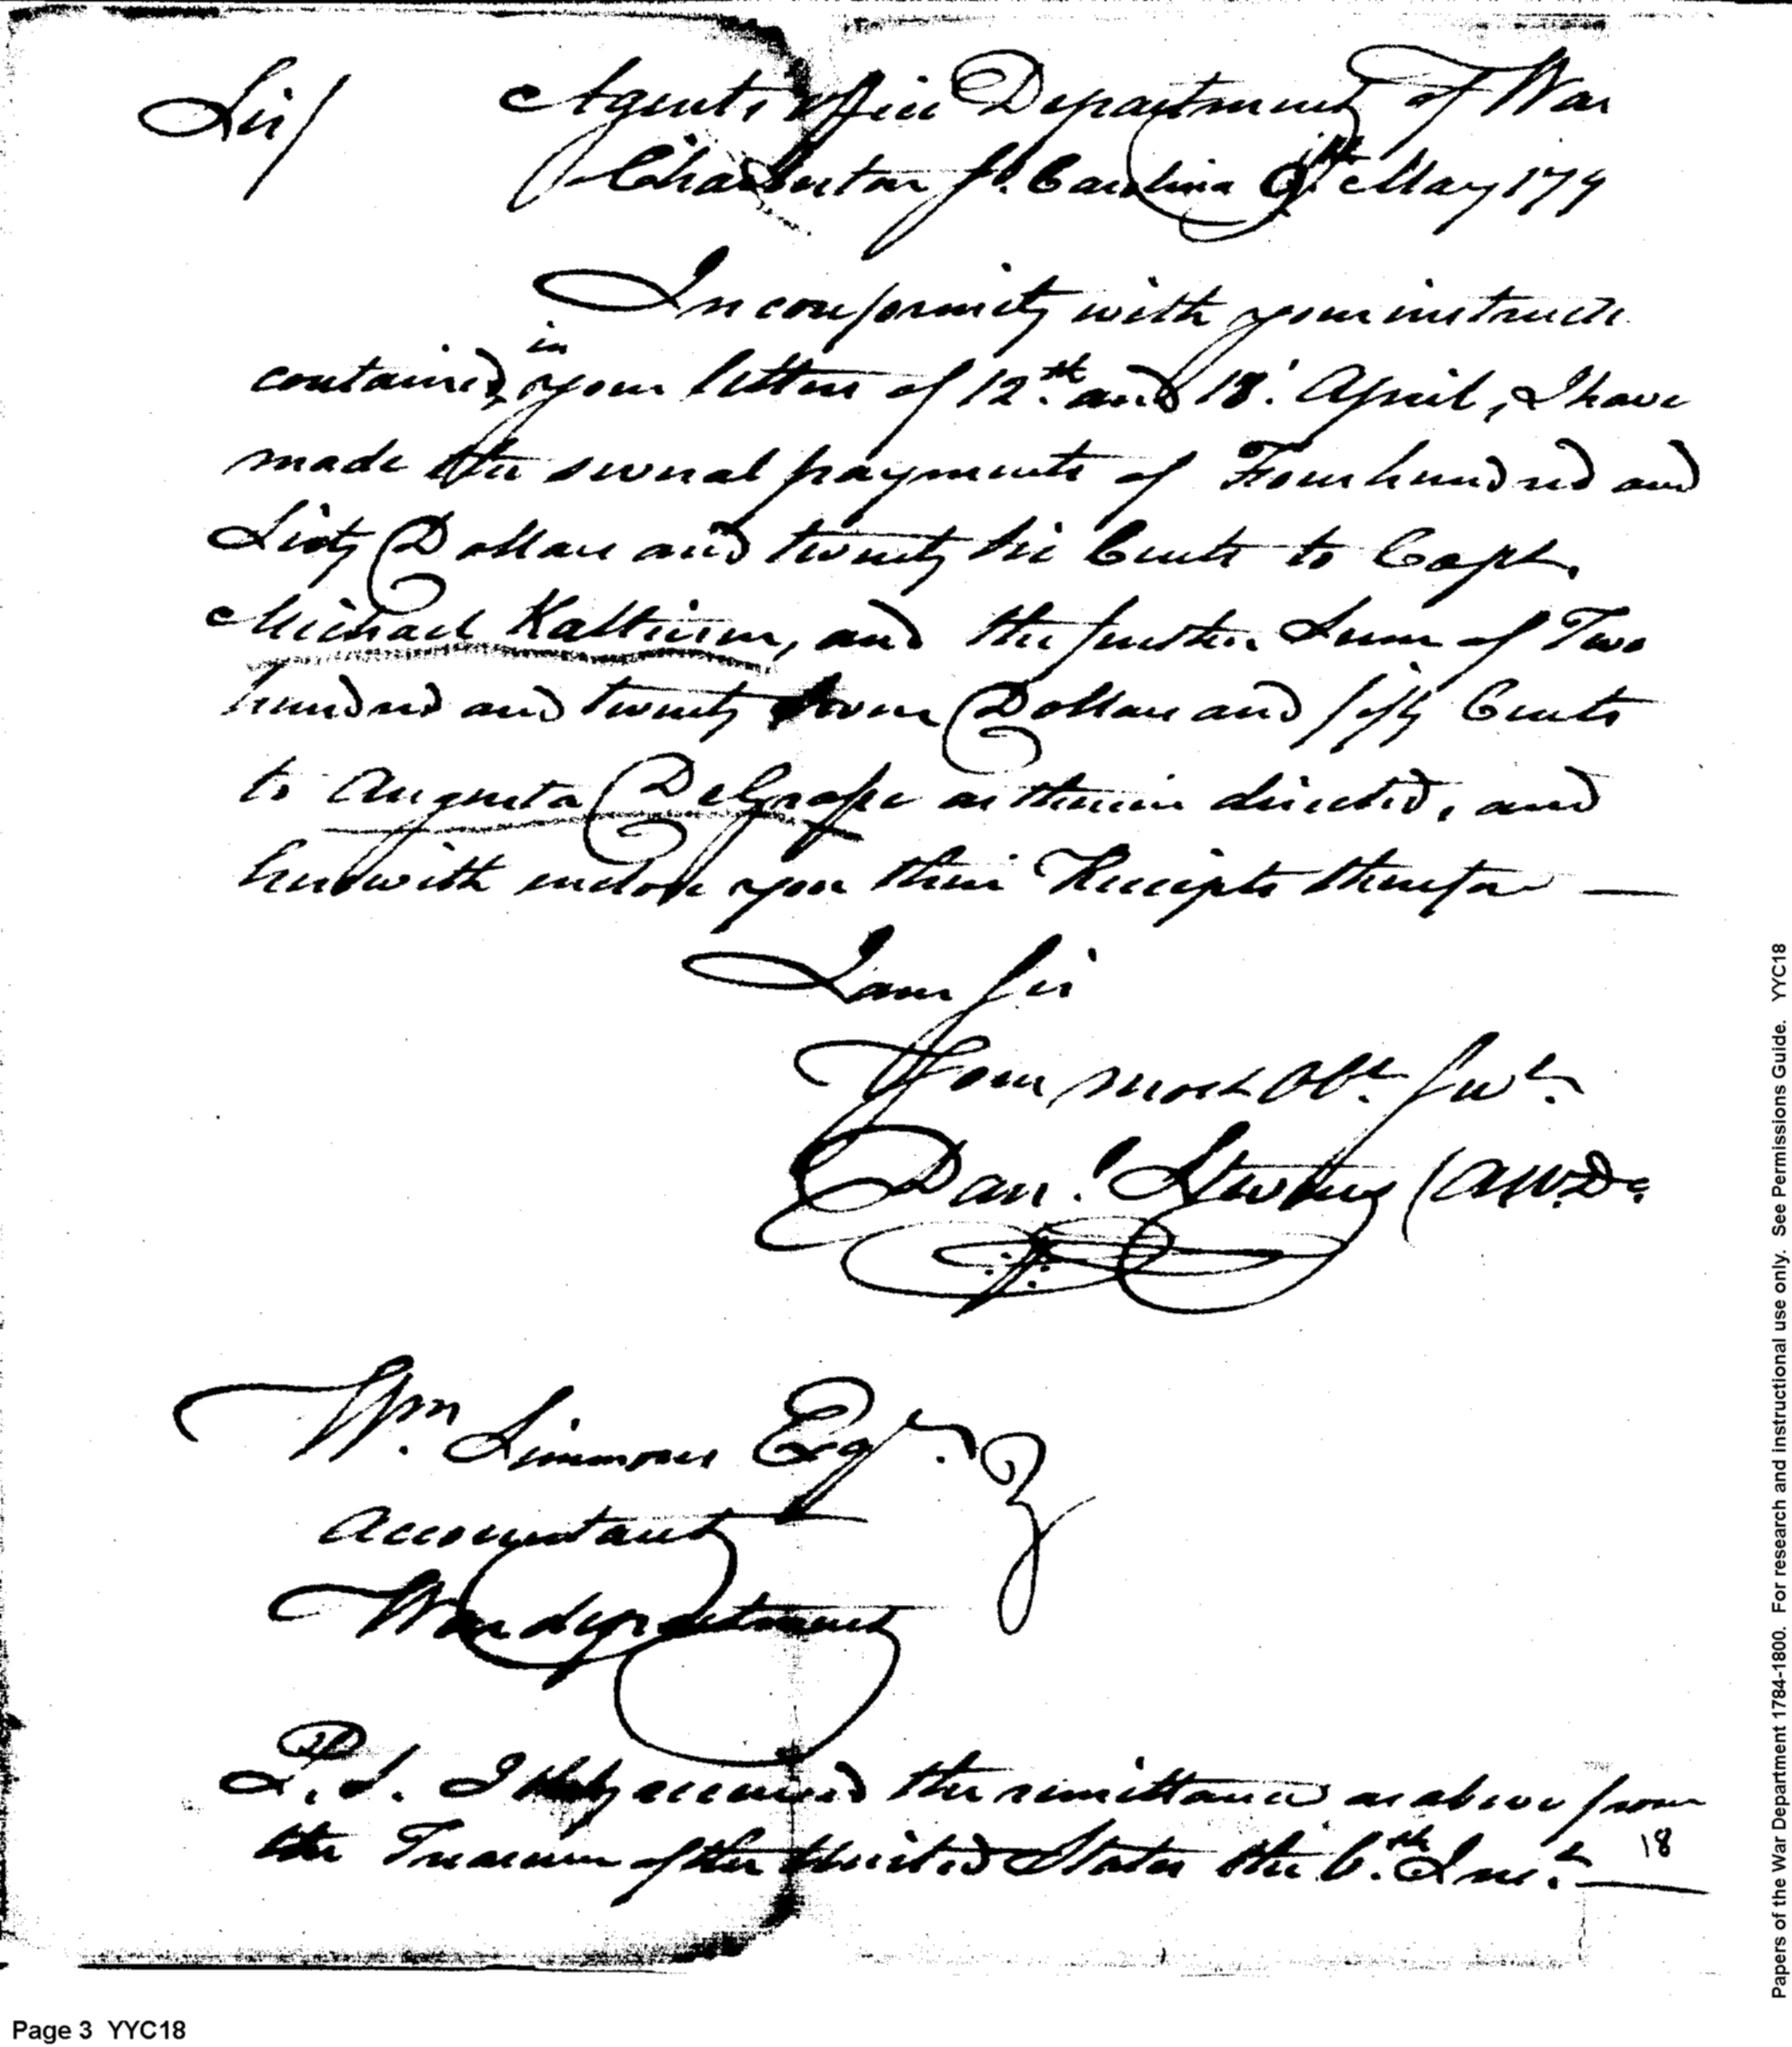 Sir/ Agents office Department of War
Charleston So. Carolina 9th May 179
In conformity with your instructi
contained in your letters of 12th. and 18' April, I have
made the several payments of Four hundred and
Sixty Dollars and twenty six Cents to Capt.
Michael Kalteisen, and the further Sum of Two
hundred and twenty seven Dollars and fifty Cents
to Augusta DeGrasse as therein directed, and
herewith enclose you their Receipts therefor —
I am Sir
Your most Obt. Svt.
Danl. Stevens (AWD.
Wm. Simmons Esqr.
Accountant
War department
P.S. I only received the remittance as above from
the Treasurer of the United States the 6th. Inst. —
18
Page 3 YYC18
Papers of the War Department 1784-1800. For research and instructional use only. See Permissions Guide. YYC18